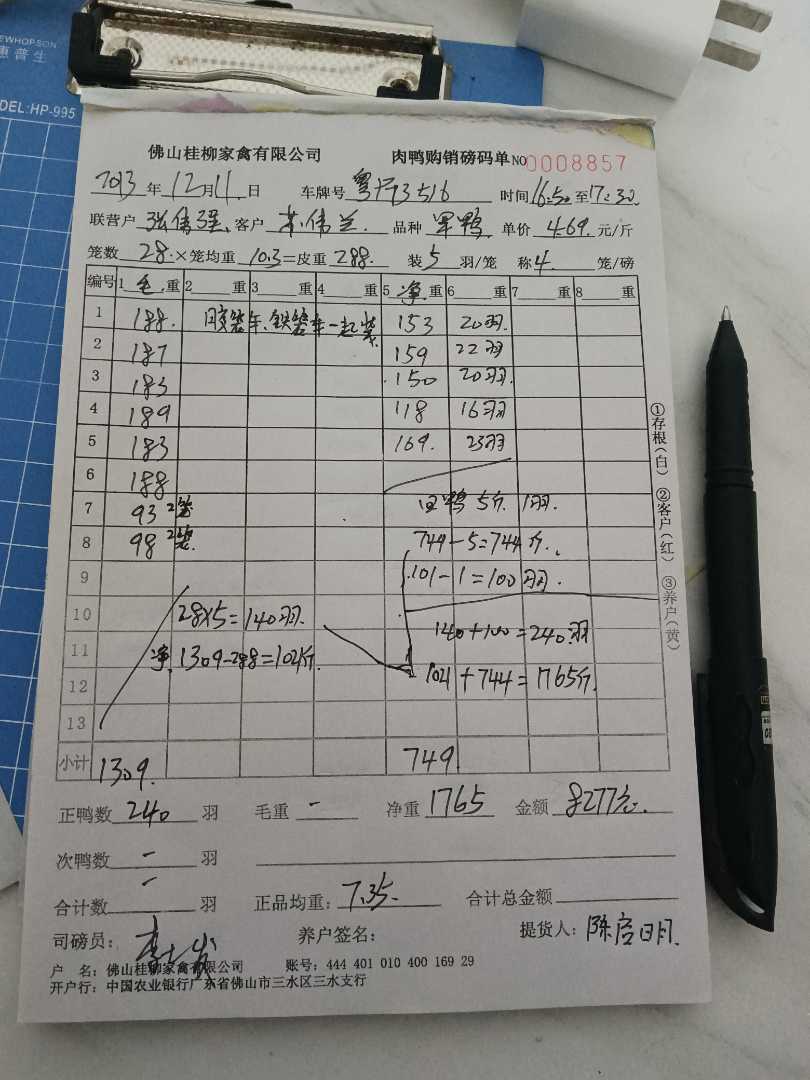 EWHOPSON
惠普生
DEL:HP-995
佛山桂柳家禽有限公司 肉鸭购销磅码单 NO 0008857
2013年12月11日 车牌号 粤 13516 时间16:50至17:30
联营户 张伟强 客户 苏伟兰 品种 草鸭 单价 4.69 元/斤
笼数 28 ×笼均重 10.3 =皮重 288 装5羽/笼 称4笼/磅
编号 1毛重 2 重 3 重 4 重 5净重 6 重 7 重 8 重
1 188. 胶笼车、铁笼车一起装 153 20羽.
2 187 159 22羽
3 183 150 20羽.
4 189 118 16羽
5 183 169. 23羽
6 188
7 93 2笼 回鸭 5斤. 1羽.
8 98 2笼 749-5=744斤.
9 101-1=100羽.
10 28×5=140羽.
140+100=240羽
11 净 1309-288=1021斤.
12 1021+744=1765斤.
13
小计 1309. 749
正鸭数 240 羽 毛重 - 净重 1765 金额 8277元.
次鸭数 - 羽
合计数 - 羽 正品均重: 7.35. 合计总金额
司磅员: 养户签名: 提货人:
户 名: 佛山桂柳家禽有限公司 账号: 444 401 010 400 169 29
开户行: 中国农业银行广东省佛山市三水区三水支行
①存根(白) ②客户(红) ③养户(黄)